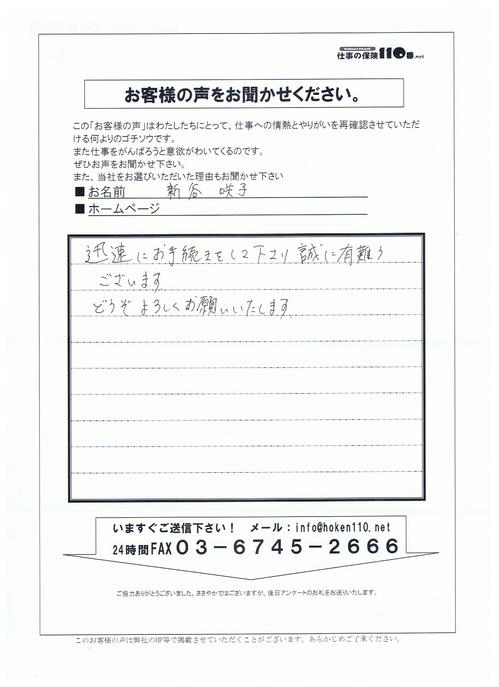 仕事の保険110番.net
お客様の声をお聞かせください。
この「お客様の声」はわたしたちにとって、仕事への情熱とやりがいを再確認させていただ
ける何よりのゴチソウです。
また仕事をがんばろうと意欲がわいてくるのです。
ぜひお声をお聞かせ下さい。
また、当社をお選びいただいた理由もお聞かせ下さい
■お名前 新谷 咲子
■ホームページ
迅速にお手続きをして下さり 誠に有難う
ございます
どうぞ よろしくお願いいたします
いますぐご送信下さい！ メール：info@hoken110.net
24時間FAX０３－６７４５－２６６６
ご協力ありがとうございました。ささやかではございますが、後日アンケートのお礼をお送りいたします。
このお客様の声は弊社のHP等で掲載させていただくことがございます。あらかじめご了承ください。